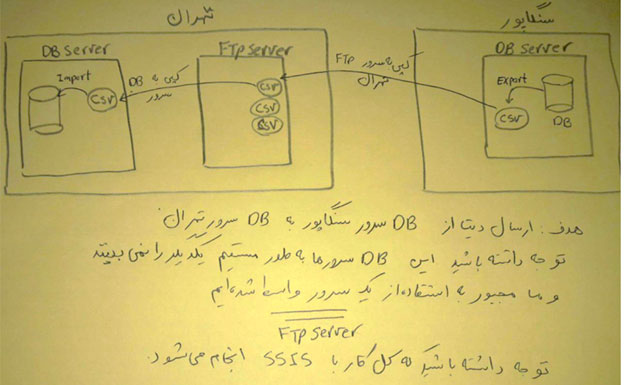 تهران
سنگاپور
DB server
FTP server
DB server
Import
CSV
کپی به DB
سرور
CSV
CSV
CSV
کپی به سرور FTP
تهران
Export
CSV
DB
هدف: ارسال دیتا از DB سرور سنگاپور به DB سرور تهران
توجه داشته باشید این DB سرورها به طور مستقیم یکدیگر را نمی بینند
و ما مجبور به استفاده از یک سرور واسط شده ایم
FTP server
توجه داشته باشید که کل کار با SSIS انجام می شود.